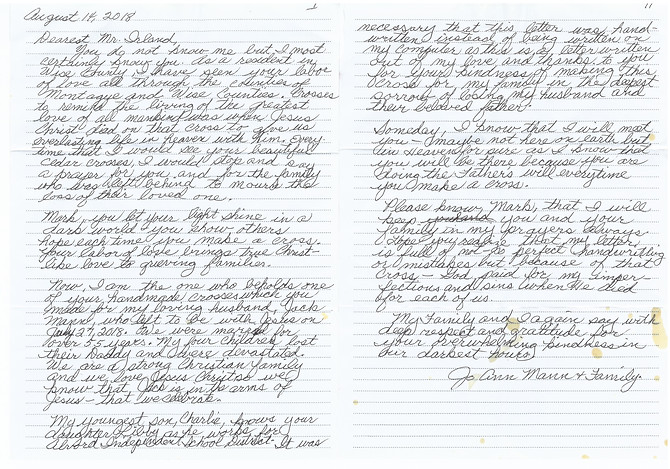 August 18, 2018
1
Dearest Mr. Irland,
You do not know me but I most
certainly know you. As a resident in
Wise County, I have seen your labor
of love all through the counties of
Montague and Wise Counties. Crosses
to remind the living of the greatest
love of all mankind was when Jesus
Christ died on that cross to give us
everlasting life in heaven with him. Every-
time that I would see your beautiful
cedar crosses, I would stop and say
a prayer for you and for the family
who was left behind to mourn the
loss of their loved one.
Mark, you let your light shine in a
dark world - you show others
hope each time you make a cross.
Your labor of love brings true Christ-
like love to grieving families.
Now, I am the one who beholds one
of your handmade crosses which you
made for my loving husband, Jack
Mann, who left to be with Jesus on
July 27, 2018. We were married for
over 55 years. My four children lost
their Daddy and were devastated.
We are a strong Christian family
and we love Jesus Christ so we
know that Jack is in the arms of
Jesus - that we celebrate.
My youngest son, Charlie, knows your
daughter, as he works for
Alvord Independent School District. It was
11
necessary that this letter was hand-
written instead of being written on
my computer as this is a letter written
out of my love and thanks to you
for your kindness of making this
Cross for my family in the deepest
sorrow of losing my husband and
their beloved father.
Someday, I know that I will meet
you - maybe not here on earth but
in Heaven for sure as I know that
you will be there because you are
doing the Father's will everytime
you make a cross.
Please know, Mark, that I will
keep you and your
family in my prayers always.
I hope you realize that my letter
is full of not so perfect handwriting
or mistakes but because of that
Cross - God paid for my imper-
fections and sins when He died
for each of us.
My Family and I again say with
deep respect and gratitude for
your overwhelming kindness in
our darkest hour,
Jo Ann Mann & Family